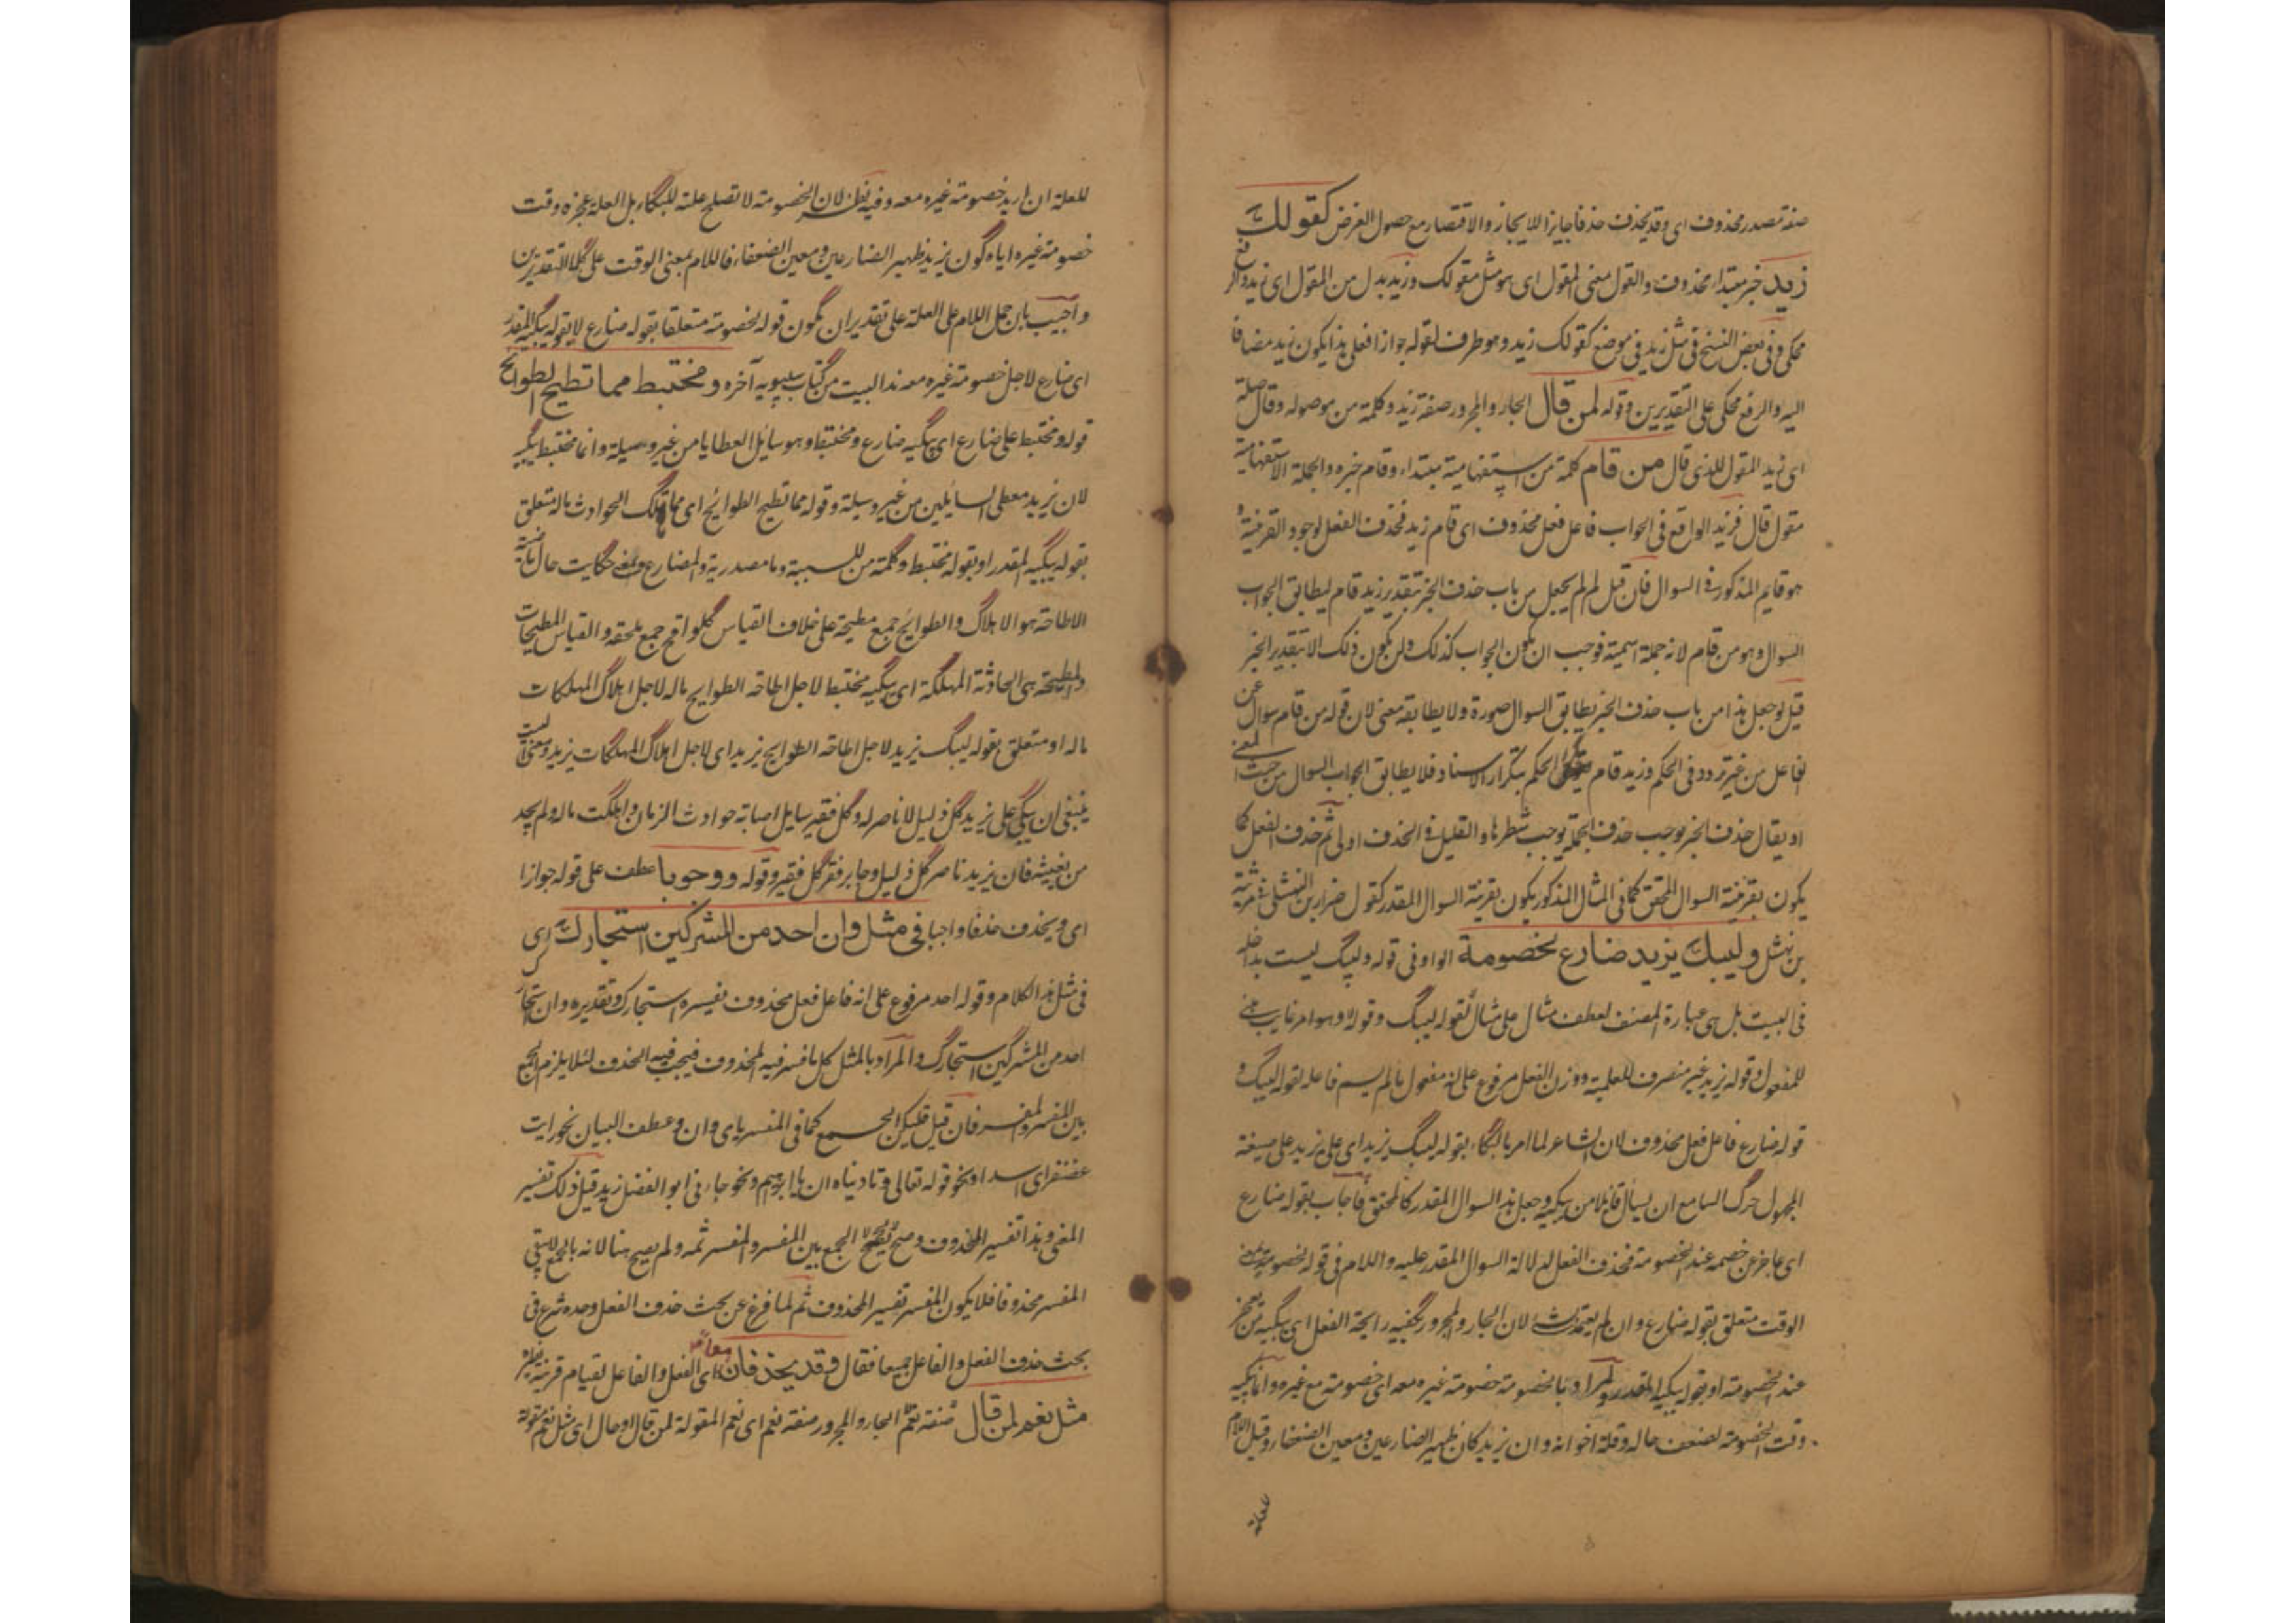 صفة مصدر محذوف اى وقد يحذف حذفا جايزا للايجاز والاقتصار مع حصول الغرض كقولك
زيد خبر مبتداء محذوف والقول بمعنى المقول اى هو مثل مقولك وزيد بدل من المقول اى زيد والرفع
محكى وفى بعض النسخ فى مثل زيد فى موضع كقولك زيد وهو ظرف لقوله جوازا فعلى هذا يكون زيد مضافا
اليه والرفع محكى على التقديرين وقوله لمن قال الجار والمجرور صفة زيد وكلمة من موصوله وقال صلة
اى زيد المقول للذى قال من قام كلمة من استفهامية مبتداء وقام خبره والجملة الاستفهامية
مقول قال فزيد الواقع فى الجواب فاعل فعل محذوف اى قام زيد فحذف الفعل لوجود القرينة و
هو قام المذكور فى السوال فان قيل لم لم يجعل من باب حذف الخبر بتقدير زيد قام ليطابق الجواب
السوال وهو من قام لانه جملة اسمية فوجب ان يكون الجواب كذلك ولن يكون ذلك الا بتقدير الخبر
قيل لو جعل هذا من باب حذف الخبر يطابق السوال صورة ولا يطابقه معنى لان قوله من قام سوال عن
الفاعل من غير تردد فى الحكم وزيد قام الحكم بتكرار الاسناد فلا يطابق الجواب السوال من حيث المعنى
او يقال حذف الخبر يوجب حذف الجملة يوجب شطرها والتقليل فى الحذف اولى ثم حذف الفعل كما
يكون بقرينة السوال المحقق كما فى المثال المذكور يكون بقرينة السوال المقدر كقول ضرار بن النهشلى فى مرثية
بن نهشل وليبك يزيد ضارع لخصومة الواو فى قوله وليبك ليست بداخلة
فى البيت بل هى عبارة المصنف لعطف مثال على مثال قوله ليبك وهو امر غايب مبنى
للمفعول وقوله يزيد غير منصرف للعلمية ووزن الفعل مرفوع على انه مفعول ما لم يسم فاعله لقوله ليبك و
قوله ضارع فاعل فعل محذوف لان الشاعر لما امر بالبكاء بقوله ليبك يزيد اى على يزيد على صيغة
المجهول حرك السامع ان يسأل قايلا من يبكيه وجعل هذا السوال المقدر كالمحقق فاجاب بقوله ضارع
اى عاجز عن خصمه عند الخصومة فحذف الفعل لدلالة السوال المقدر عليه واللام فى قوله لخصومة بمعنى
الوقت متعلق بقوله ضارع وان لم يعتمد لان الجار والمجرور يكفيه رايحة الفعل اى يبكيه من يعجز
عند الخصومة او بقوله يبكيه المقدر والمراد بالخصومة خصومة غيره معه اى خصومة مع غيره وانما يبكيه
وقت الخصومة لضعف حاله وقلة اخوانه وان يزيد كان ظهير الضارعين ومعين الضعفاء وقيل اللام
للعلة
للعلة ان اريد خصومة غيره معه وفيه نظر لان الخصومة لا تصلح علة للبكاء بل العلة عجزه وقت
خصومة غيره اياه كون يزيد ظهير الضارعين ومعين الضعفاء فاللام بمعنى الوقت على كلا التقديرين
واجيب بان حمل اللام على العلة على تقدير ان يكون قوله لخصومة متعلقا بقوله ضارع لا بقوله يبكيه المقدر
اى ضارع لاجل خصومة غيره معه هذا البيت من كتاب سيبويه آخره ومختبط مما تطيح الطوائح
قوله ومختبط على ضارع اى يبكيه ضارع ومختبط وهو سايل العطايا من غير وسيلة وانما مختبط يبكيه
لان يزيد معطى السايلين من غير وسيلة وقوله مما تطيح الطوائح اى مما تهلك الحوادث ماله متعلق
بقوله يبكيه المقدر او بقوله مختبط وكلمة من للسببية وما مصدرية والمضارع بمعنى حكايت حال ماضية
الاطاحة هو الاهلاك والطوائح جمع مطيحة على خلاف القياس كلواقح جمع ملقحة والقياس المطيحات
والمطيحة هى الحادثة المهلكة اى يبكيه مختبط لاجل اطاحة الطوايح ماله لاجل اهلاك المهلكات
ماله او متعلق بقوله ليبك يزيد لاجل اطاحة الطوايح يزيد اى لاجل اهلاك المهلكات يزيد ومعنى البيت
ينبغى ان يبكى على يزيد كل ذليل لا ناصر له وكل فقير سايل اصابته حوادث الزمان واهلكت ماله ولم يجد
من يغيثه فان يزيد ناصر كل ذليل وجابر فقر كل فقير وقوله ووجوبا عطف على قوله جوازا
اى ويحذف حذفا واجبا فى مثل وان احد من المشركين استجارك اى
فى مثل هذا الكلام وقوله احد مرفوع على انه فاعل فعل محذوف يفسره استجارك وتقديره وان استجارك
احد من المشركين استجارك والمراد بالمثل كل ما فسر فيه المحذوف فيجب فيه الحذف لئلا يلزم الجمع
بين المفسر والمفسر فان قيل فليكن الجمع كما فى المفسر باى وان وعطف البيان نحو رايت
غضنفرا اى اسدا ونحو قوله تعالى وناديناه ان يا ابراهيم ونحو جاءنى ابو الفضل زيد قيل ذلك تفسير
المعنى وهذا تفسير المحذوف وصح الجمع بين المفسر والمفسر ثمه ولم يصح هنا لانه بالجمع لا يبقى
المفسر محذوفا فلا يكون المفسر تفسير المحذوف ثم لما فرغ عن بحث حذف الفعل وحده شرع فى
بحث حذف الفعل والفاعل جميعا فقال وقد يحذفان معا اى الفعل والفاعل لقيام قرينة
مثل نعم لمن قال صفة نعم الجار والمجرور صفة نعم اى نعم المقولة لمن قال او حال اى مثل نعم مقولة